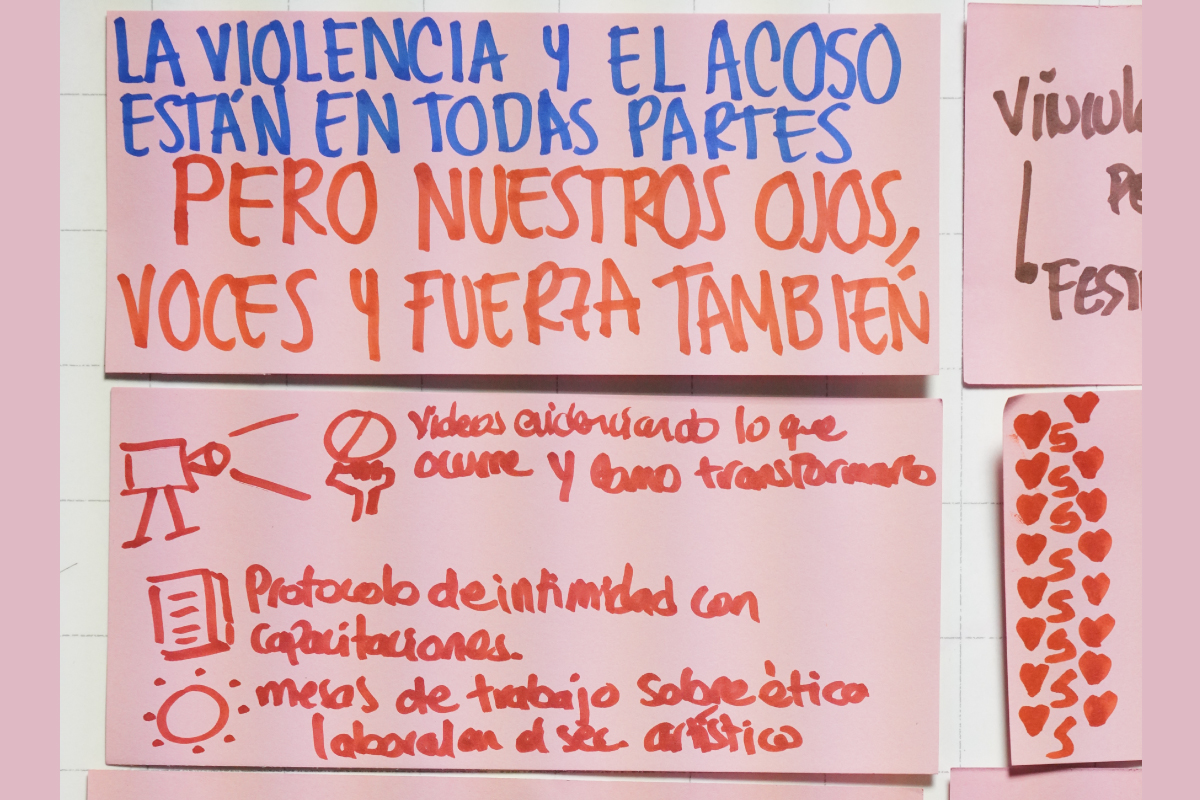 LA VIOLENCIA Y EL ACOSO
ESTÁN EN TODAS PARTES
PERO NUESTROS OJOS,
VOCES Y FUERZA TAMBIEN
videos evidenciando lo que
ocurre y como transformarlo
Protocolo de intimidad con
capacitaciones.
mesas de trabajo sobre ètica
laboral en el sec. artístico